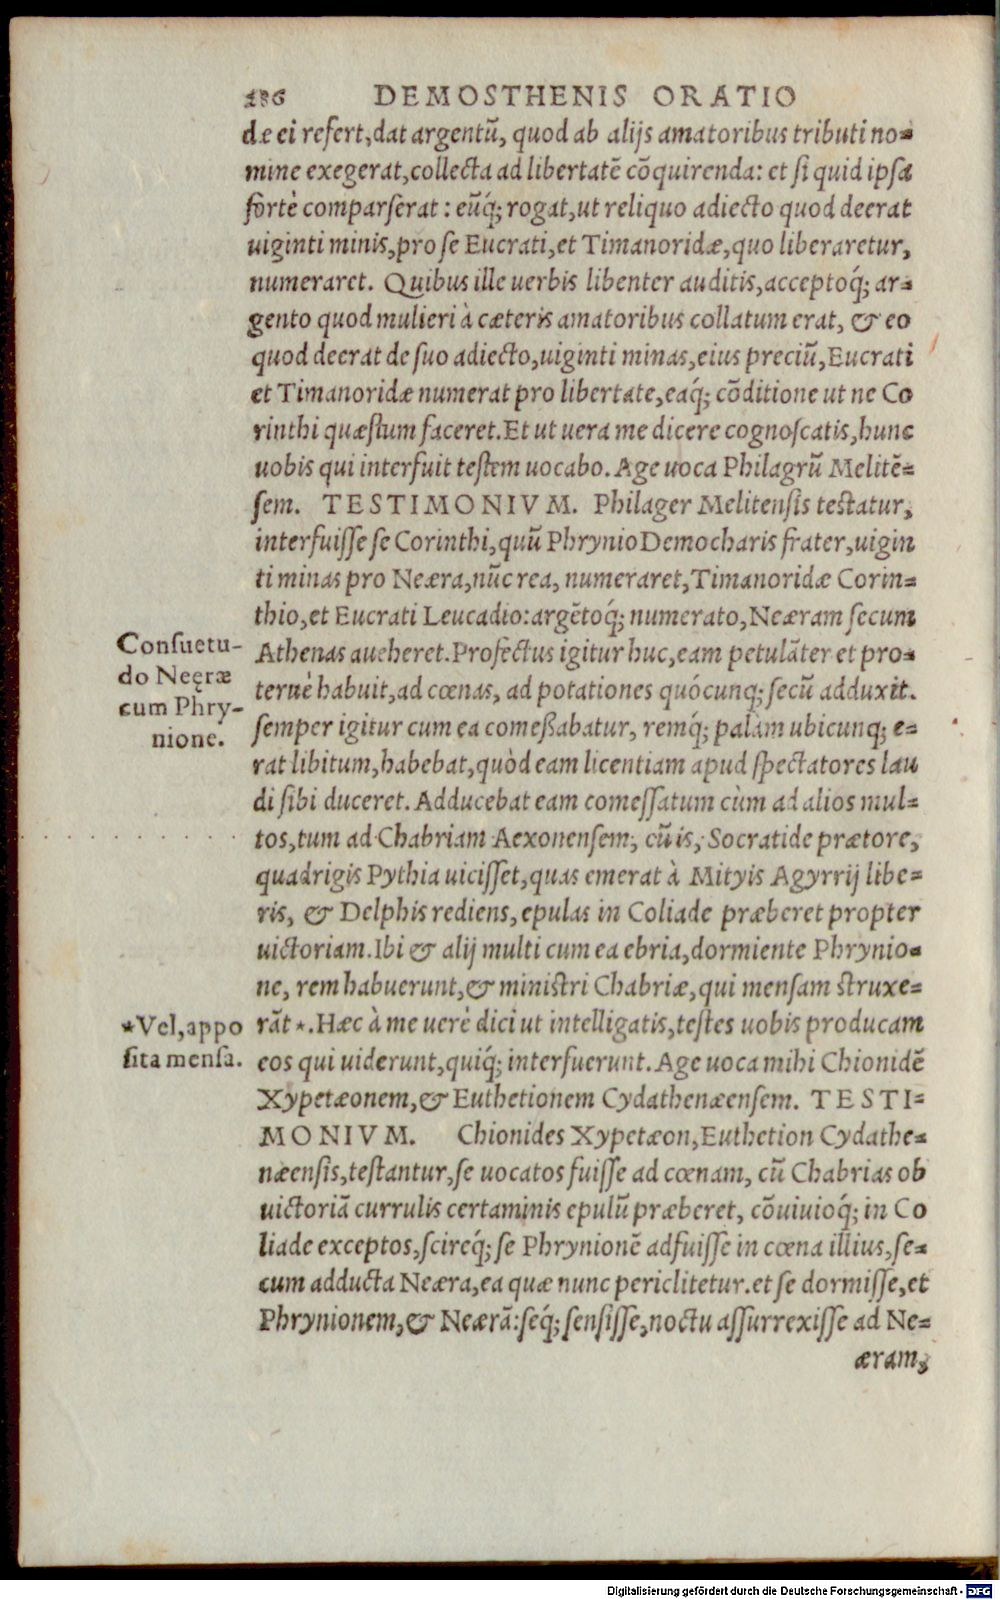 186 DEMOSTHENIS ORATIO
de ei refert, dat argentũ, quod ab alijs amatoribus tributi no-
mine exegerat, collecta ad libertatẽ cõquirenda: et si quid ipsa
fortè comparserat: eũq́; rogat, ut reliquo adiecto quod deerat
uiginti minis, pro se Eucrati, et Timanoridæ, quo liberaretur,
numeraret. Quibus ille uerbis libenter auditis, acceptoq́; ar-
gento quod mulieri à cæteris amatoribus collatum erat, & eo
quod deerat de suo adiecto, uiginti minas, eius preciũ, Eucrati
et Timanoridæ numerat pro libertate, eaq́; cõditione ut ne Co
rinthi quæstum faceret. Et ut uera me dicere cognoscatis, hunc
uobis qui interfuit testem uocabo. Age uoca Philagrũ Melitẽ-
sem. TESTIMONIVM. Philager Melitensis testatur,
interfuisse se Corinthi, quũ Phrynio Democharis frater, uigin
ti minas pro Neæra, nũc rea, numeraret, Timanoridæ Corin-
thio, et Eucrati Leucadio: argẽtoq́; numerato, Neæram secum
Athenas aueheret. Profectus igitur huc, eam petulãter et pro-
teruè habuit, ad cœnas, ad potationes quócunq; secũ adduxit.
semper igitur cum ea comeßabatur, remq́; palàm ubicunq; e-
rat libitum, habebat, quòd eam licentiam apud spectatores lau
di sibi duceret. Adducebat eam comessatum cùm ad alios mul-
tos, tum ad Chabriam Aexonensem, cũ is, Socratide prætore,
quadrigis Pythia uicisset, quas emerat à Mityis Agyrrij libe-
ris, & Delphis rediens, epulas in Coliade præberet propter
uictoriam. Ibi & alij multi cum ea ebria, dormiente Phrynio-
ne, rem habuerunt, & ministri Chabriæ, qui mensam struxe-
rãt *. Hæc à me uerè dici ut intelligatis, testes uobis producam
eos qui uiderunt, quiq́; interfuerunt. Age uoca mihi Chionidẽ
Xypetæonem, & Euthetionem Cydathenæensem. TESTI-
MONIVM. Chionides Xypetæon, Euthetion Cydathe-
næensis, testantur, se uocatos fuisse ad cœnam, cũ Chabrias ob
uictoriã currulis certaminis epulũ præberet, cõuiuioq́; in Co
liade exceptos, scireq́; se Phrynionẽ adfuisse in cœna illius, se-
cum adducta Neæra, ea quæ nunc periclitetur. et se dormisse, et
Phrynionem, & Neærã: seq́; sensisse, noctu assurrexisse ad Ne-
æram,
Consuetu-
do Neęræ
cum Phry-
nione.
*Vel, appo
sita mensa.
Digitalisierung gefördert durch die Deutsche Forschungsgemeinschaft - DFG